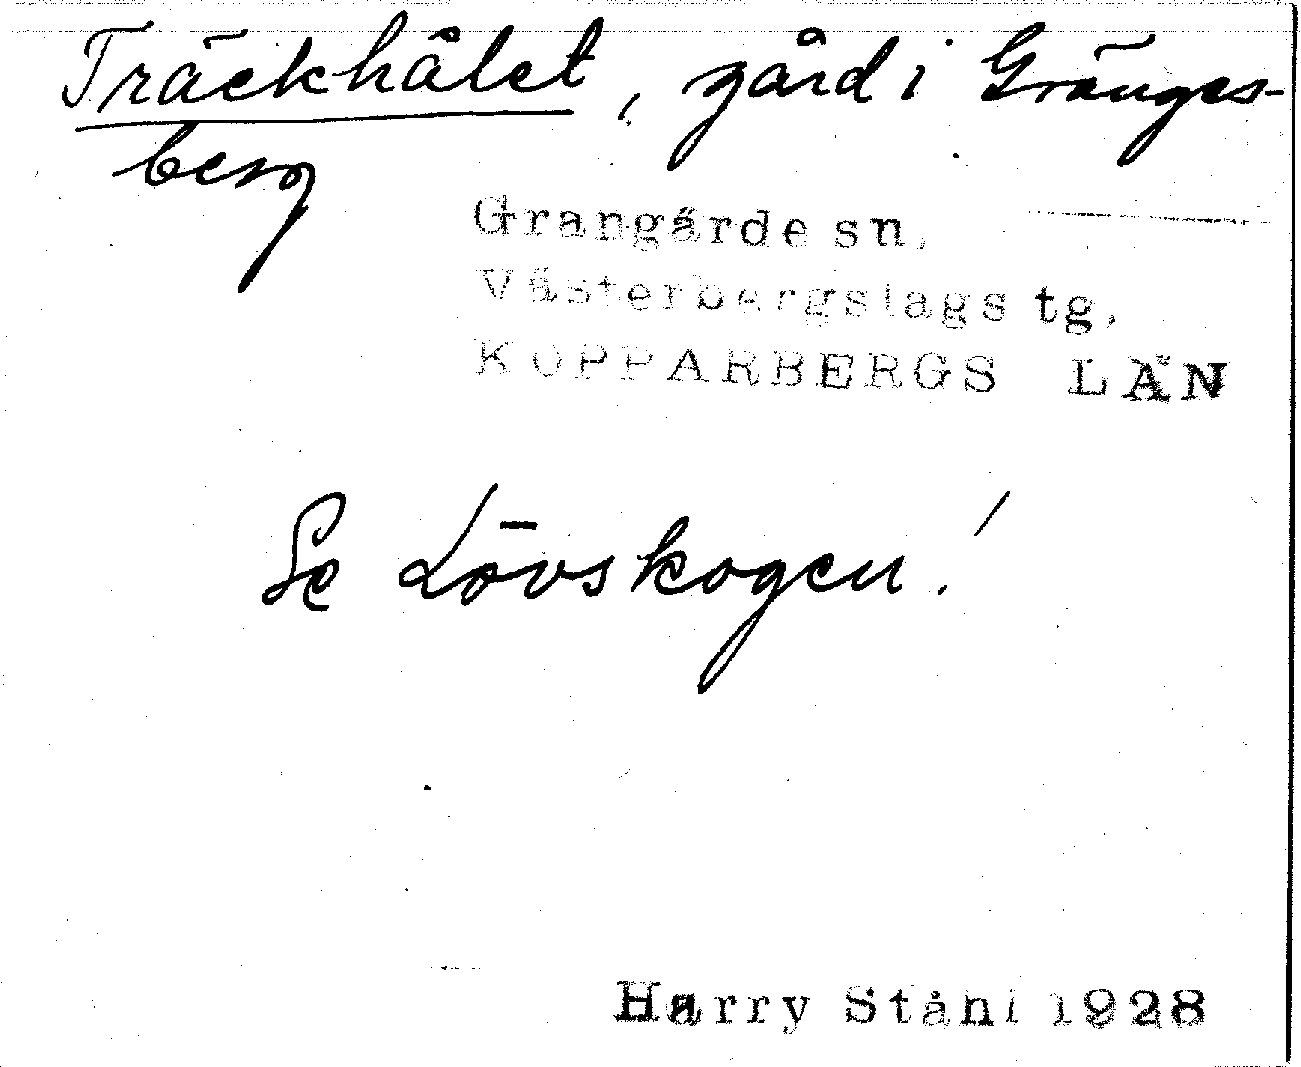 Träckhålet, gård i Gränges-
berg
Grangärde sn.
Västerbergslags tg.
KOPPARBERGS LÄN
Se Lövskogen!
Harry Ståhl 1928